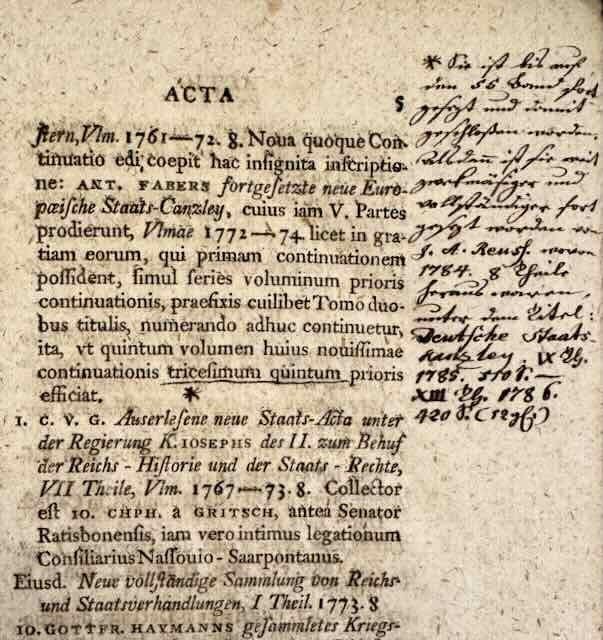 ACTA 5
ſtern, Vlm. 1761—72. 8. Noua quoque Con-
tinuatio edi coepit hac inſignita inſcriptio-
ne: ANT. FABERS fortgeſetzte neue Euro-
pæiſche Staats-Canzley, cuius iam V. Partes
prodierunt, Vlmae 1772—74. licet in gra-
tiam eorum, qui primam continuationem
poſſident, ſimul ſeries voluminum prioris
continuationis, praefixis cuilibet Tomo duo-
bus titulis, numerando adhuc continuetur,
ita, vt quintum volumen huius nouiſſimae
continuationis triceſimum quintum prioris
efficiat. *
1. C. V. G. Auserleſene neue Staats-Acta unter
der Regierung K. IOSEPHS des II. zum Behuf
der Reichs-Hiſtorie und der Staats-Rechte,
VII Theile, Vlm. 1767—73. 8. Collector
eſt IO. CHPH. à GRITSCH, antea Senator
Ratisbonenſis, iam vero intimus legationum
Conſiliarius Naſſouio-Saarpontanus.
Eiusd. Neue vollſtändige Sammlung von Reichs-
und Staatsverhandlungen, I Theil. 1773. 8
IO. GOTTFR. HAYMANNS geſammletes Kriegs-
* Sie ist bis auf
den 55 Band fort
gesezt und damit
geschloßen worden.
Alsdann ist sie weit
zweckmäsiger und
vollständiger fort
gesezt worden von
J. A. Reuss. wovon
1784. 8 Theile
heraus waren,
unter dem Titel:
Deutsche Staats-
kanzley. IX Th.
1785. 510 S.—
XIII Th. 1786.
420 S. (12 gl)